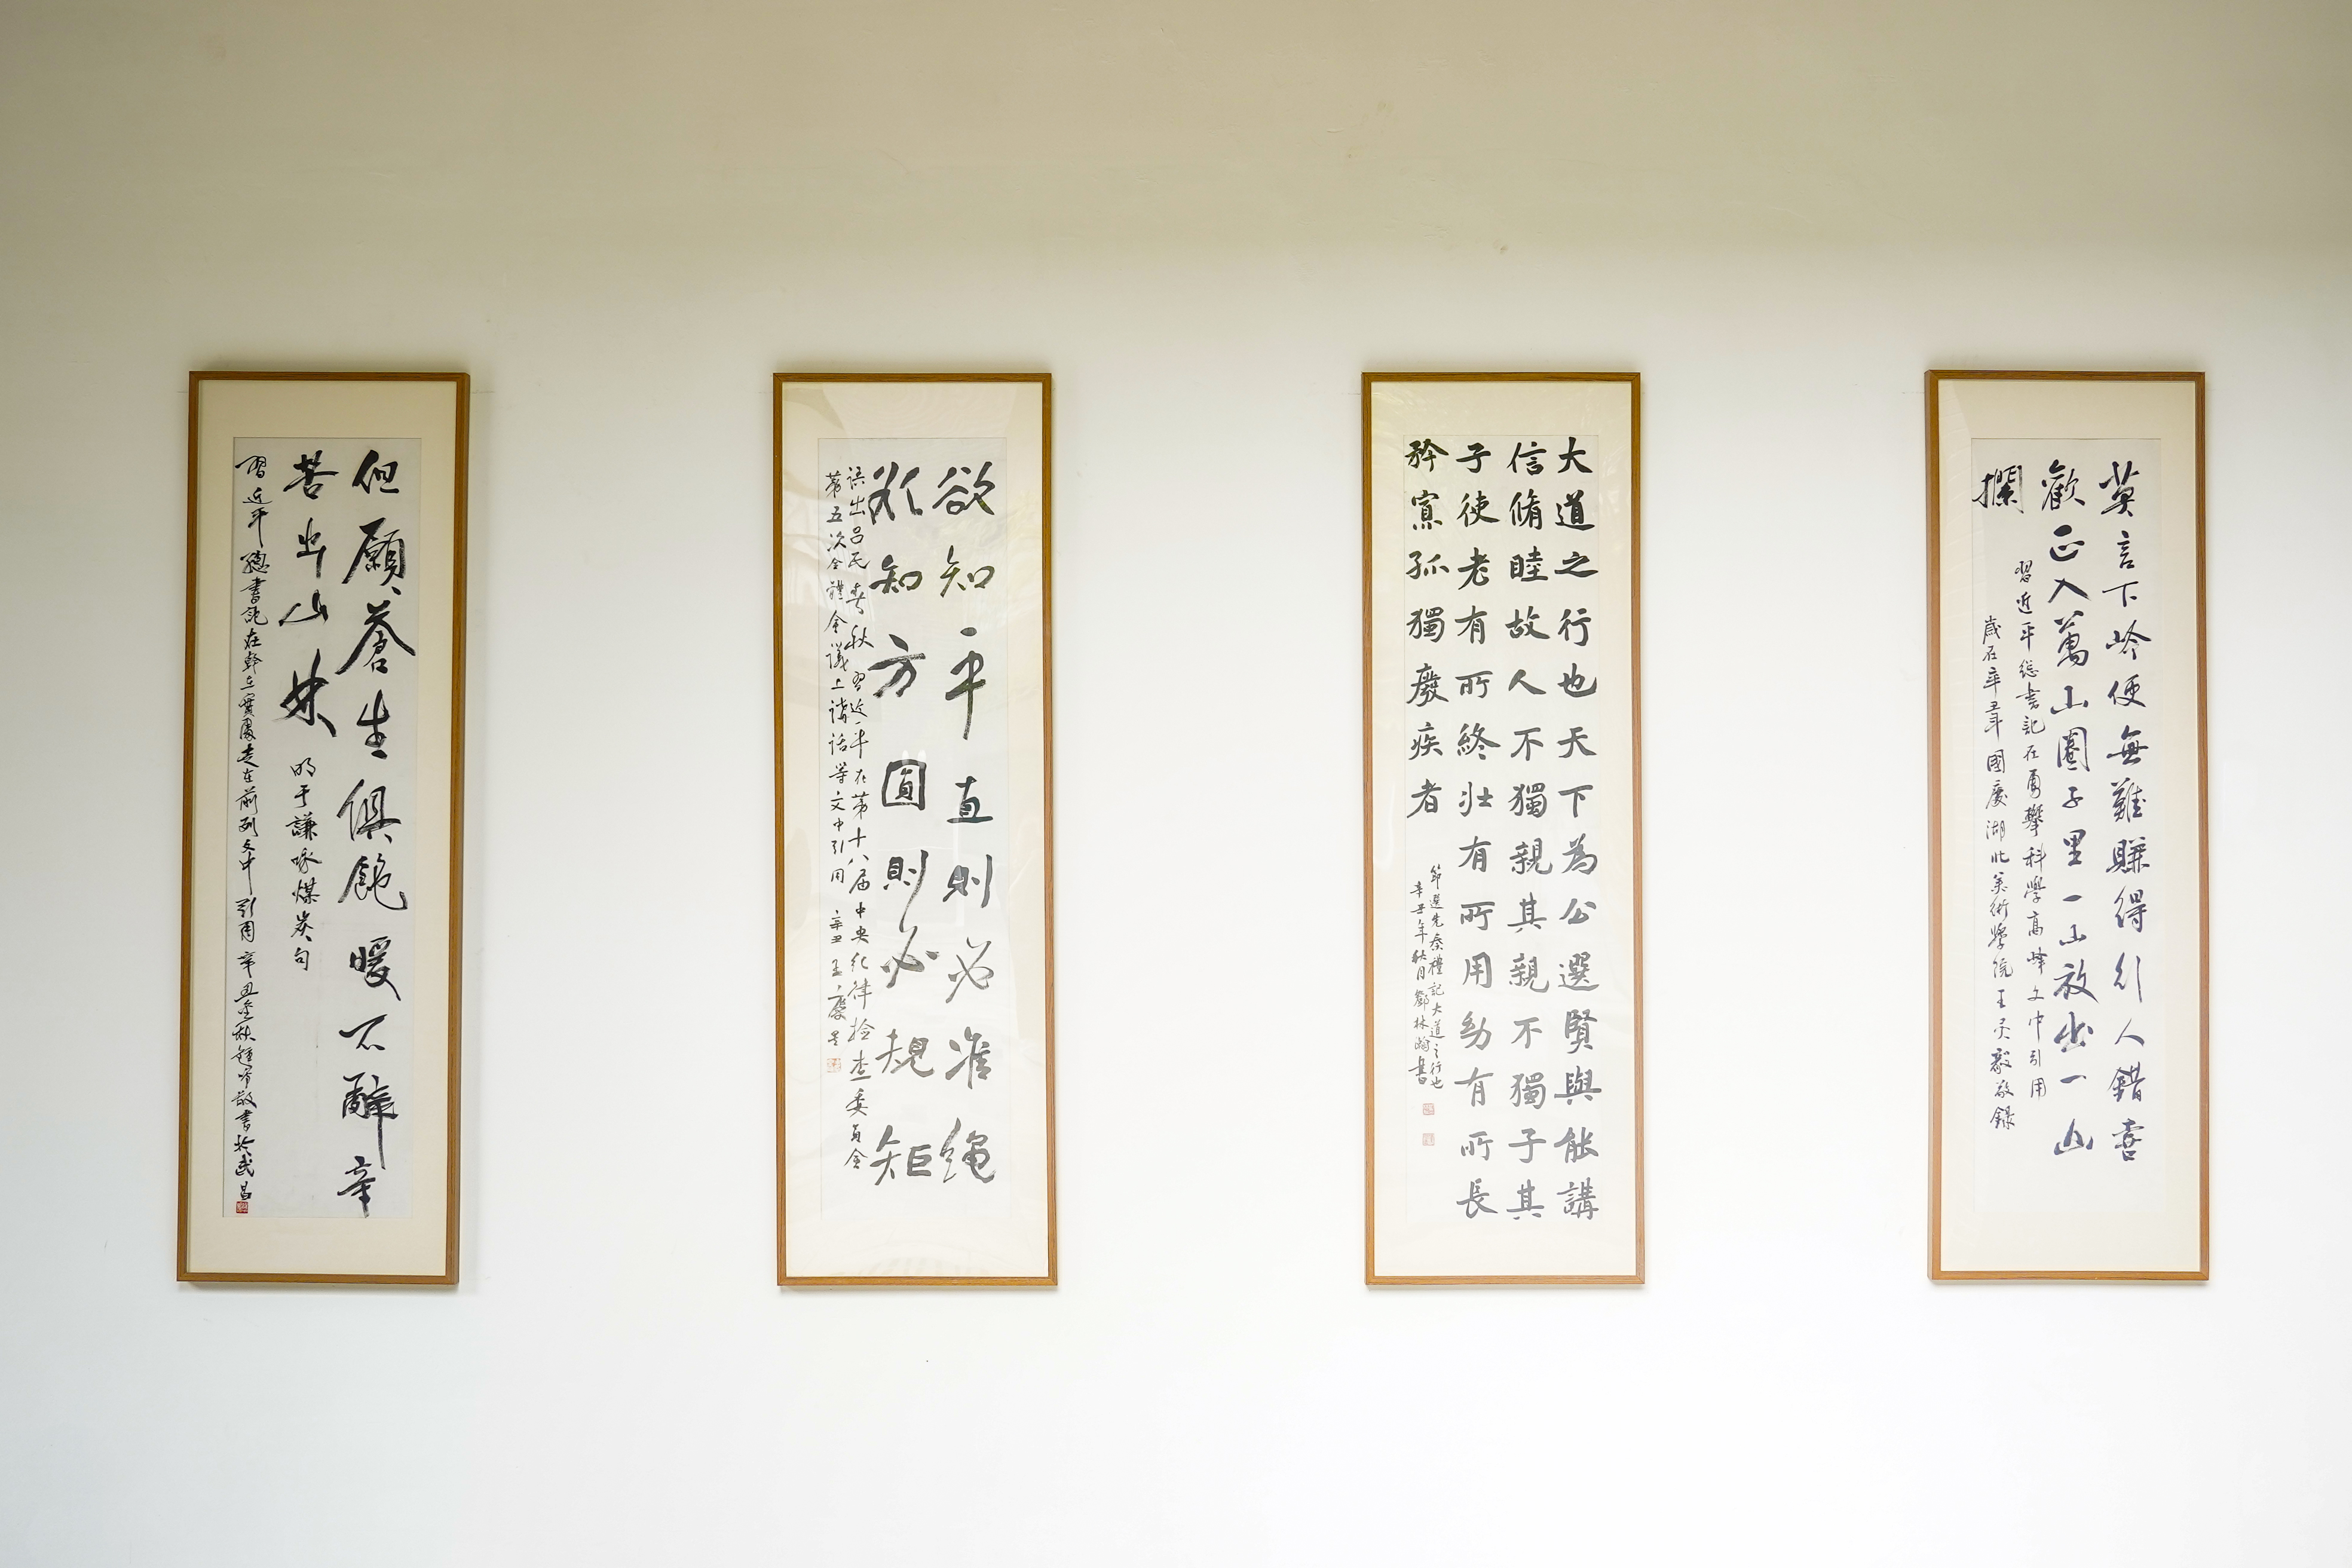 但願蒼生俱飽暖不辭辛
苦出山林 明于謙咏煤炭句
習近平總書記在幹在實處走在前列文中引用 辛丑金秋敬書於武昌
欲知平直則必准绳
欲知方圓則必規矩
语出吕氏春秋習近平在第十八届中央纪律检查委員会
第五次全體会議上講话等文中引用 辛丑
大道之行也天下為公選賢與能講
信脩睦故人不獨親其親不獨子其
子使老有所終壯有所用幼有所長
矜寡孤獨廢疾者
節選先秦禮記大道之行也
辛丑年秋月鄧林瀚書
莫言下岭便無難賺得行人錯喜
歡正入萬山圈子里一山放出一山
攔
習近平總書記在勇攀科學高峰文中引用
歲在辛丑年國慶湖北美術學院王敬錄